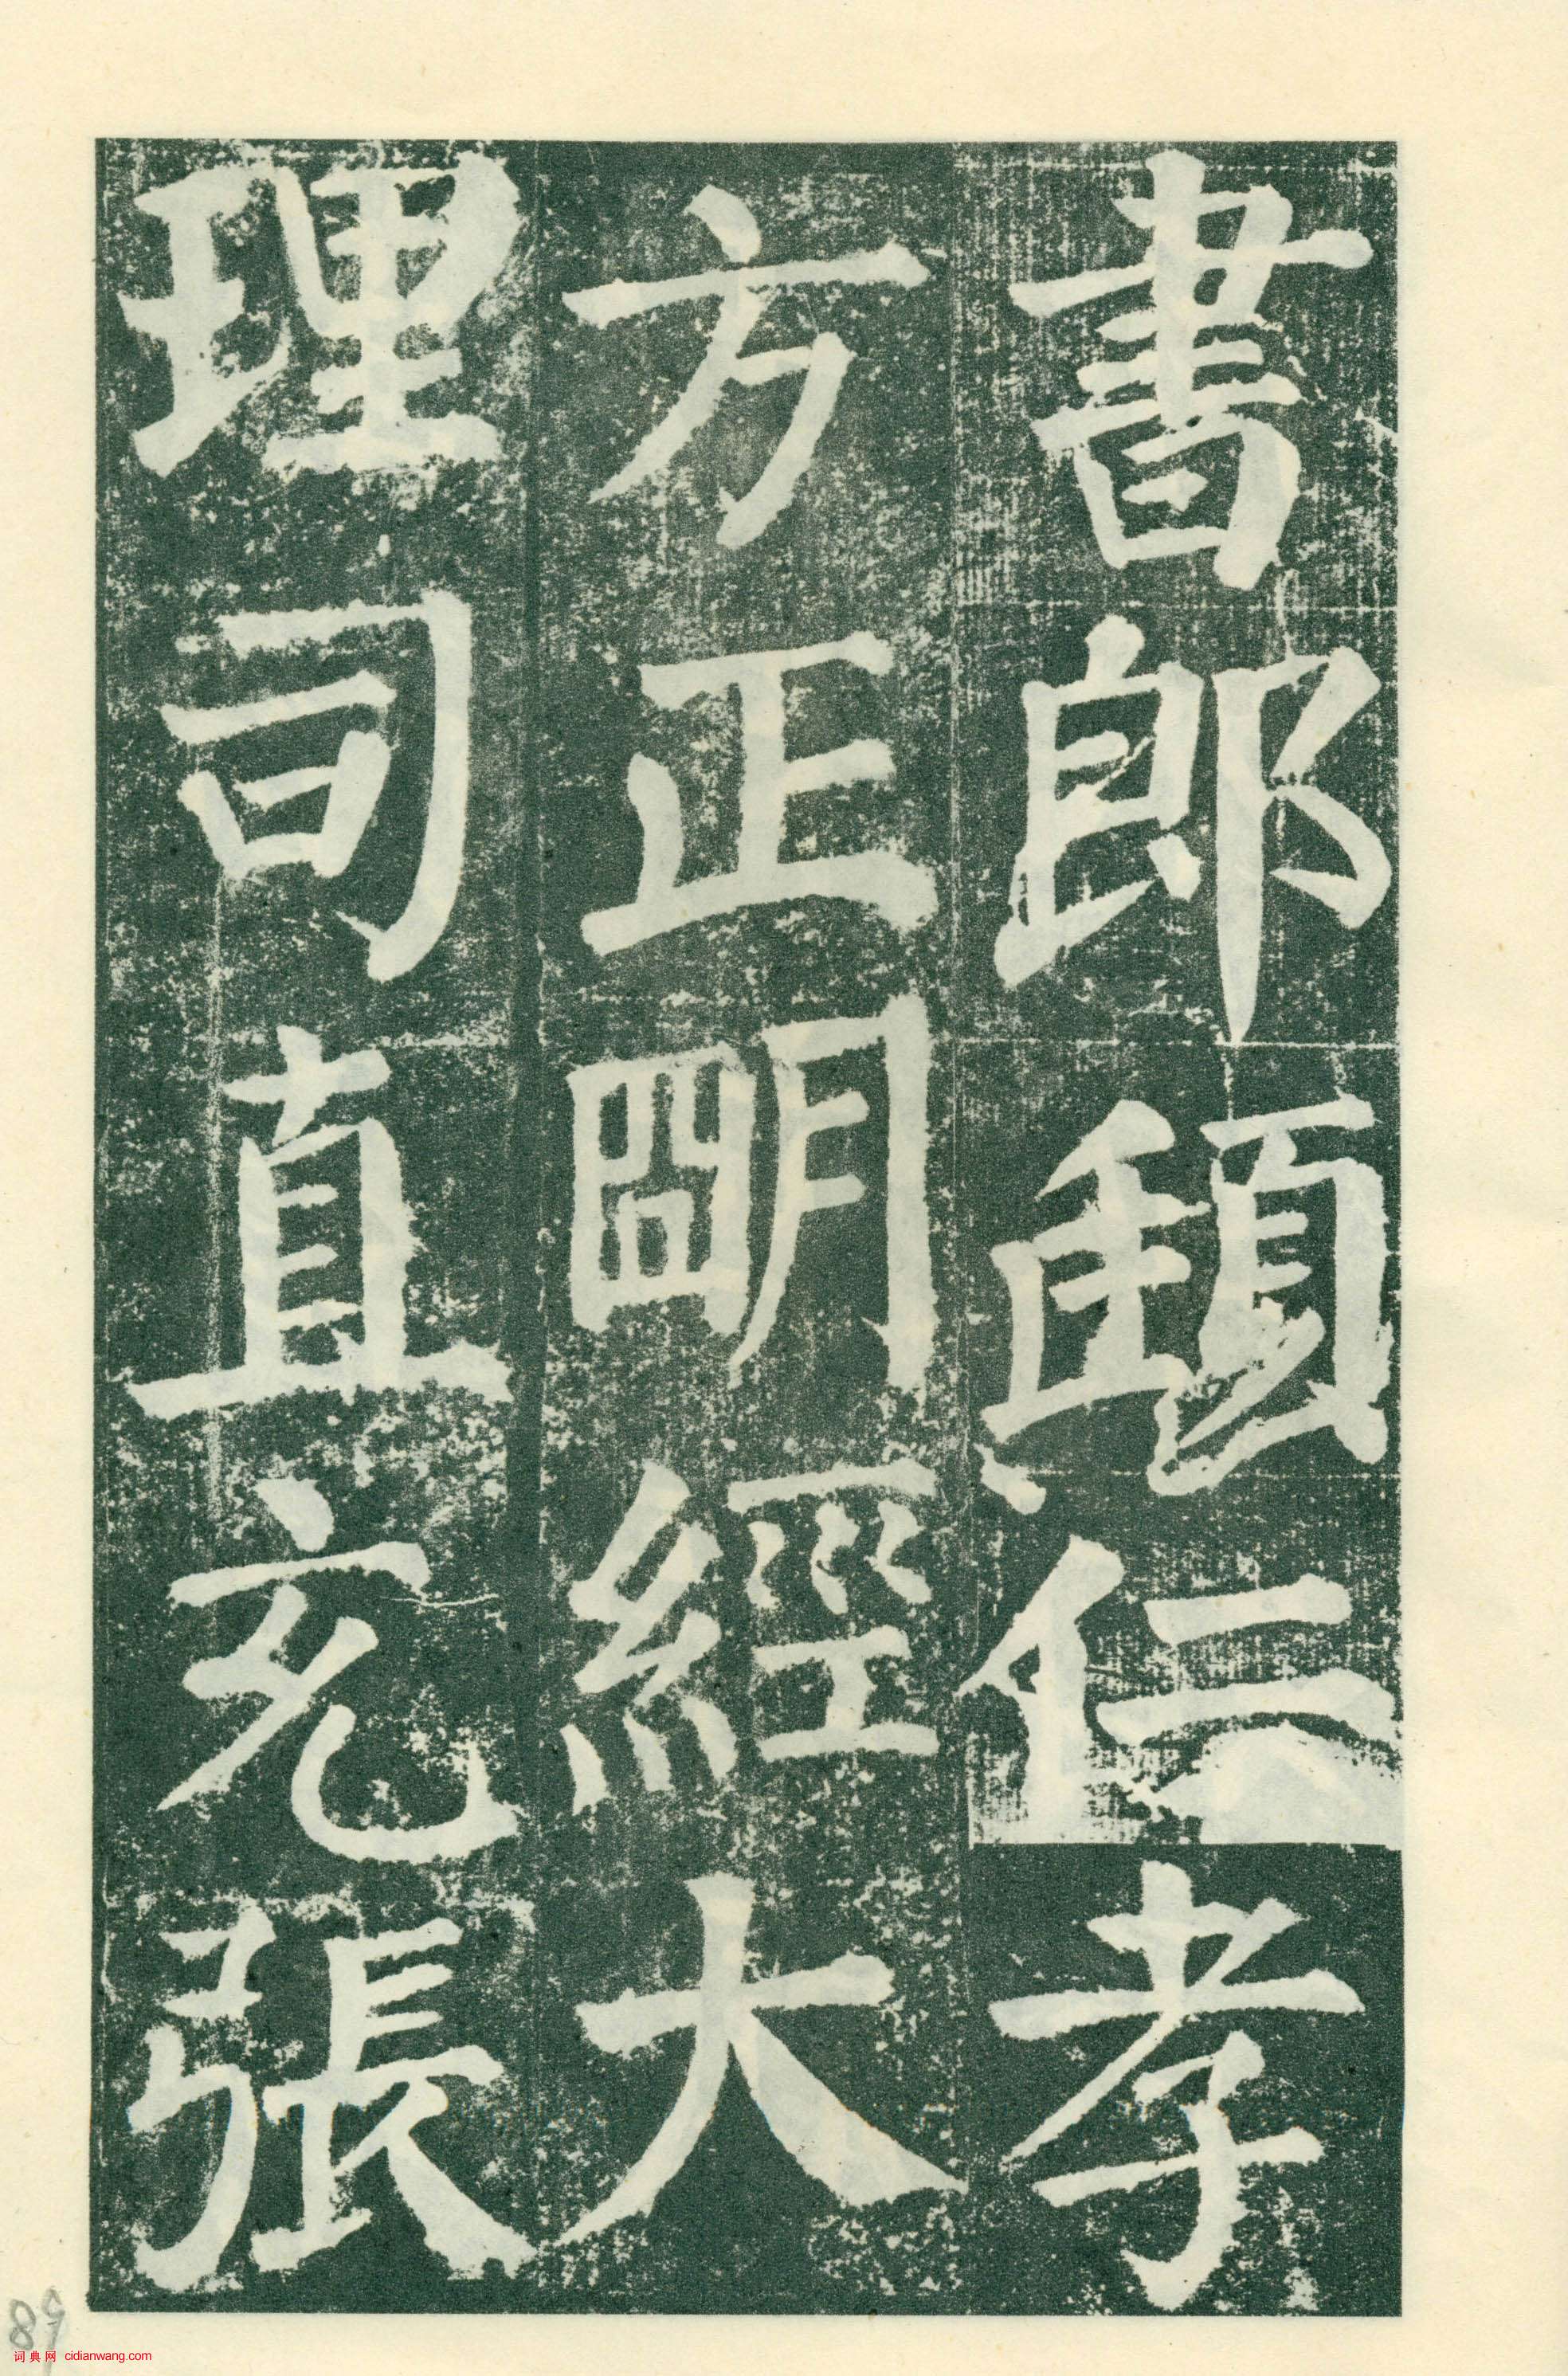 書郎頵仁孝
方正明經大
理司直充張
89
词典网 cidianwang.com